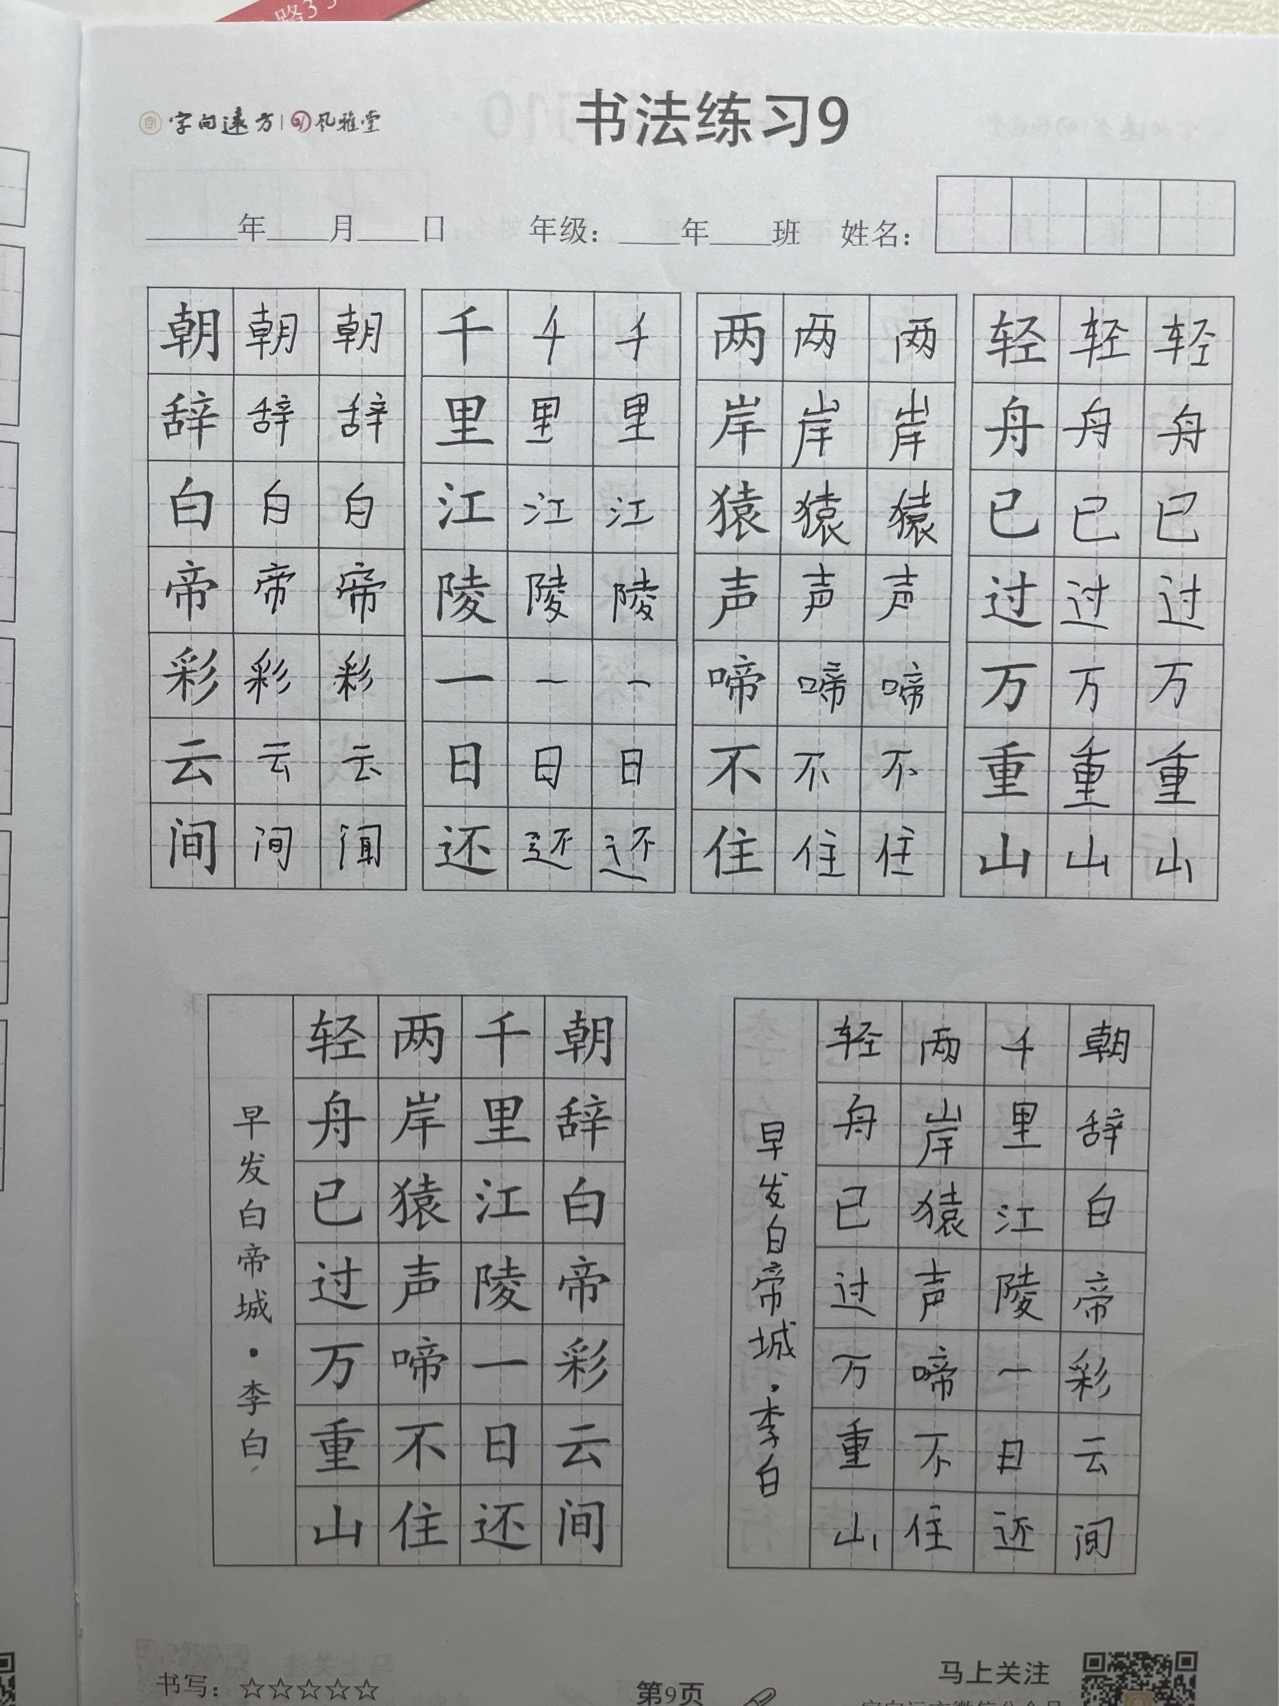 路33
字向远方 风雅堂
书法练习9
____年____月____日 年级：____年____班 姓名：
朝朝朝 千千千 两两两 轻轻轻
辞辞辞 里里里 岸岸岸 舟舟舟
白白白 江江江 猿猿猿 已已已
帝帝帝 陵陵陵 声声声 过过过
彩彩彩 一一一 啼啼啼 万万万
云云云 日日日 不不不 重重重
间间间 还还还 住住住 山山山
朝辞白帝彩云间
千里江陵一日还
两岸猿声啼不住
轻舟已过万重山
早发白帝城·李白
朝辞白帝彩云间
千里江陵一日还
两岸猿声啼不住
轻舟已过万重山
早发白帝城·李白
书写：☆☆☆☆☆
第9页
马上关注